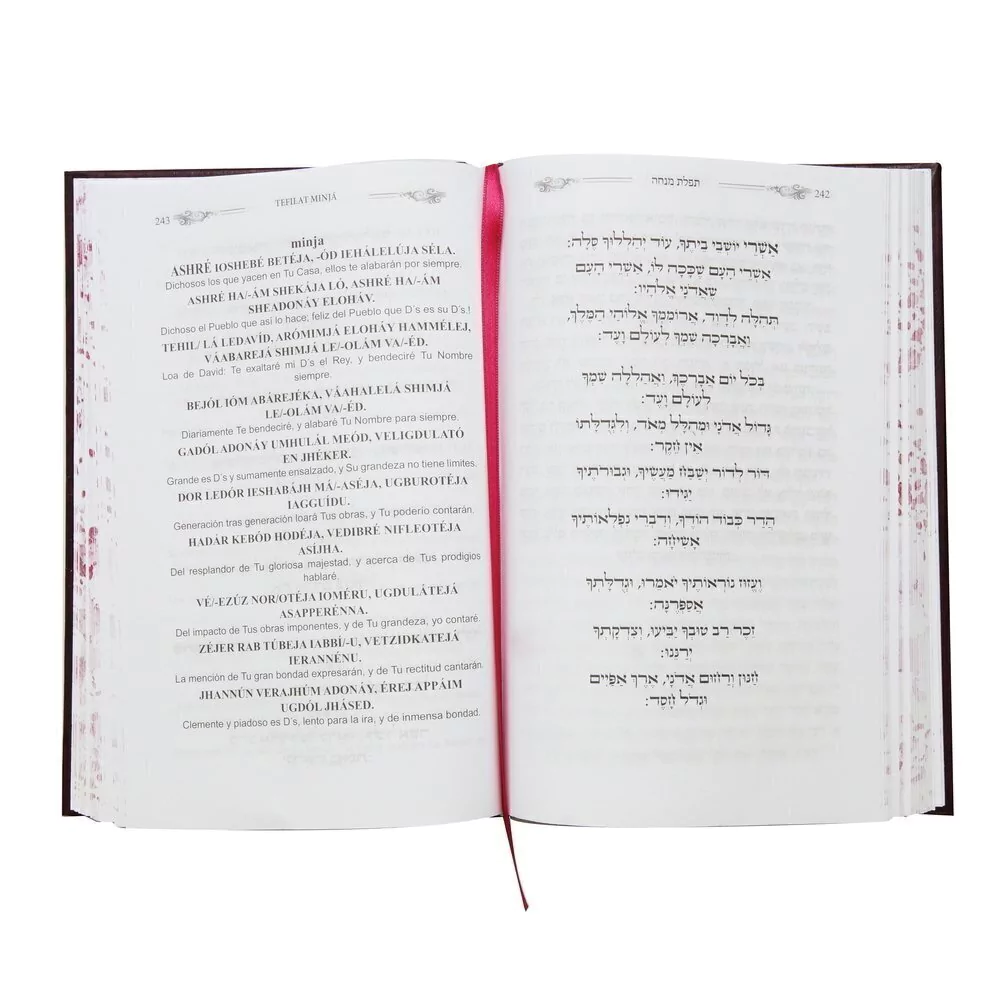 תפלת מנחה
242
אַשְׁרֵי יוֹשְׁבֵי בֵיתֶךָ, עוֹד יְהַלְלוּךָ סֶּלָה:
אַשְׁרֵי הָעָם שֶׁכָּכָה לּוֹ, אַשְׁרֵי הָעָם
שֶׁאֲדֹנָי אֱלֹהָיו:
תְּהִלָּה לְדָוִד, אֲרוֹמִמְךָ אֱלוֹהַי הַמֶּלֶךְ,
וַאֲבָרְכָה שִׁמְךָ לְעוֹלָם וָעֶד:
בְּכָל יוֹם אֲבָרְכֶךָּ, וַאֲהַלְלָה שִׁמְךָ
לְעוֹלָם וָעֶד:
גָּדוֹל אֲדֹנָי וּמְהֻלָּל מְאֹד, וְלִגְדֻלָּתוֹ
אֵין חֵקֶר:
דּוֹר לְדוֹר יְשַׁבַּח מַעֲשֶׂיךָ, וּגְבוּרֹתֶיךָ
יַגִּידוּ:
הֲדַר כְּבוֹד הוֹדֶךָ, וְדִבְרֵי נִפְלְאוֹתֶיךָ
אָשִׂיחָה:
וֶעֱזוּז נוֹרְאוֹתֶיךָ יֹאמֵרוּ, וּגְדֻלָּתְךָ
אֲסַפְּרֶנָּה:
זֵכֶר רַב טוּבְךָ יַבִּיעוּ, וְצִדְקָתְךָ
יְרַנֵּנוּ:
חַנּוּן וְרַחוּם אֲדֹנָי, אֶרֶךְ אַפַּיִם
וּגְדָל חָסֶד:
243
TEFILAT MINJÁ
minja
ASHRÉ IOSHEBÉ BETÉJA, -ÓD IEHÁLELÚJA SÉLA.
Dichosos los que yacen en Tu Casa, ellos te alabarán por siempre.
ASHRÉ HA/-ÁM SHEKÁJA LÓ, ASHRÉ HA/-ÁM
SHEADONÁY ELOHÁV.
Dichoso el Pueblo que así lo hace; feliz del Pueblo que D´s es su D´s.!
TEHIL/ LÁ LEDAVÍD, ARÓMIMJÁ ELOHÁY HAMMÉLEJ,
VÁABAREJÁ SHIMJÁ LE/-OLÁM VA/-ÉD.
Loa de David: Te exaltaré mi D´s el Rey, y bendeciré Tu Nombre
siempre.
BEJÓL IÓM ABÁREJÉKA, VÁAHALELÁ SHIMJÁ
LE/-OLÁM VA/-ÉD.
Diariamente Te bendeciré, y alabaré Tu Nombre para siempre.
GADÓL ADONÁY UMHULÁL MEÓD, VELIGDULATÓ
EN JHÉKER.
Grande es D´s y sumamente ensalzado, y Su grandeza no tiene límites.
DOR LEDÓR IESHABÁJH MÁ/-ASÉJA, UGBUROTÉJA
IAGGUÍDU.
Generación tras generación loará Tus obras, y Tu poderío contarán.
HADÁR KEBÓD HODÉJA, VEDIBRÉ NIFLEOTÉJA
ASÍJHA.
Del resplandor de Tu gloriosa majestad, y acerca de Tus prodigios
hablaré.
VÉ/-EZÚZ NOR/OTÉJA IOMÉRU, UGDULÁTEJÁ
ASAPPERÉNNA.
Del impacto de Tus obras imponentes, y de Tu grandeza, yo contaré.
ZÉJER RAB TÚBEJA IABBÍ/-U, VETZIDKATEJÁ
IERANNÉNU.
La mención de Tu gran bondad expresarán, y de Tu rectitud cantarán.
JHANNÚN VERAJHÚM ADONÁY, ÉREJ APPÁIM
UGDÓL JHÁSED.
Clemente y piadoso es D´s, lento para la ira, y de inmensa bondad.